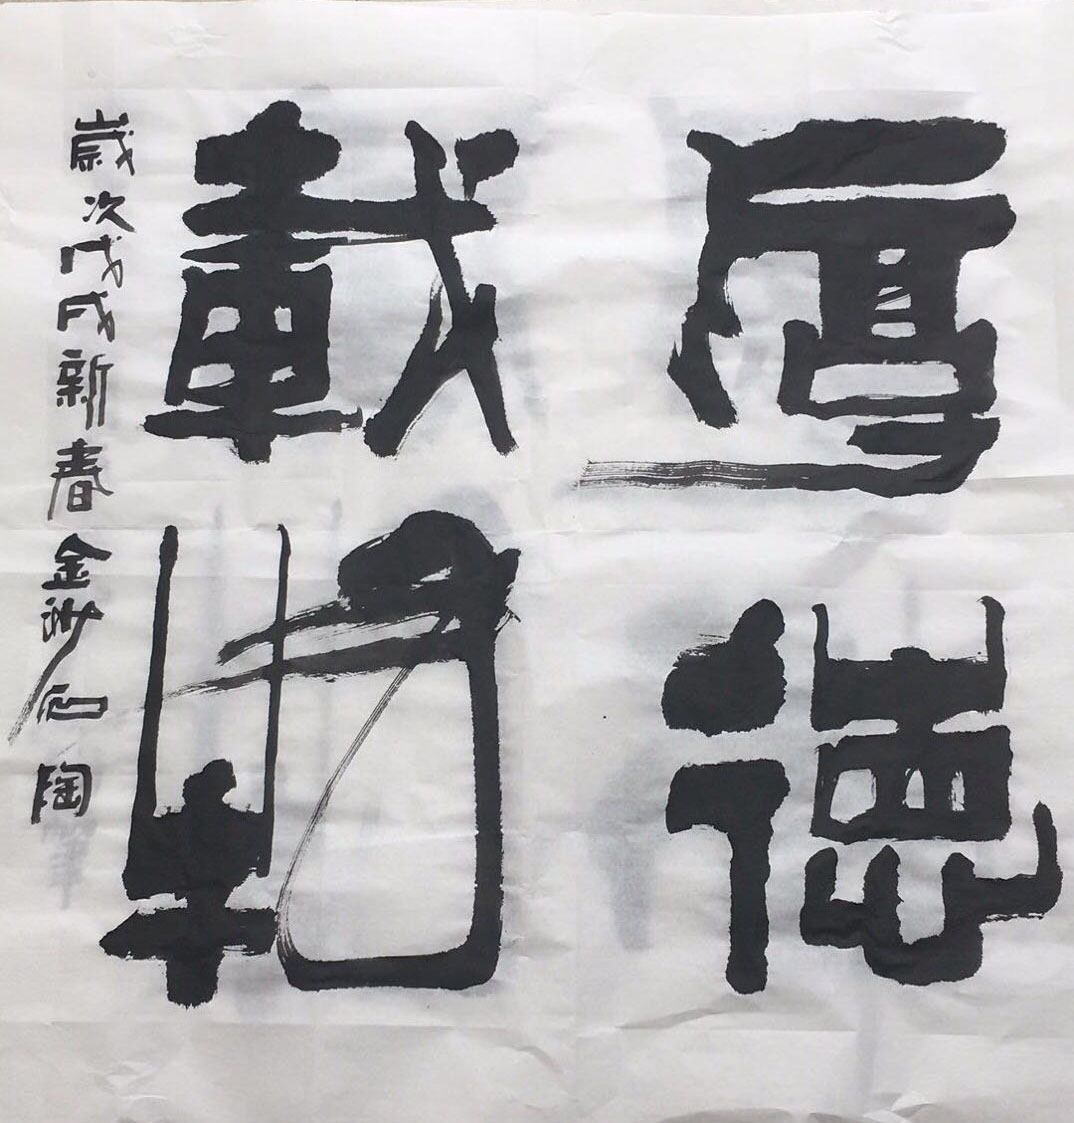 厚德
載物
歲次戊戌新春金沙仙陶